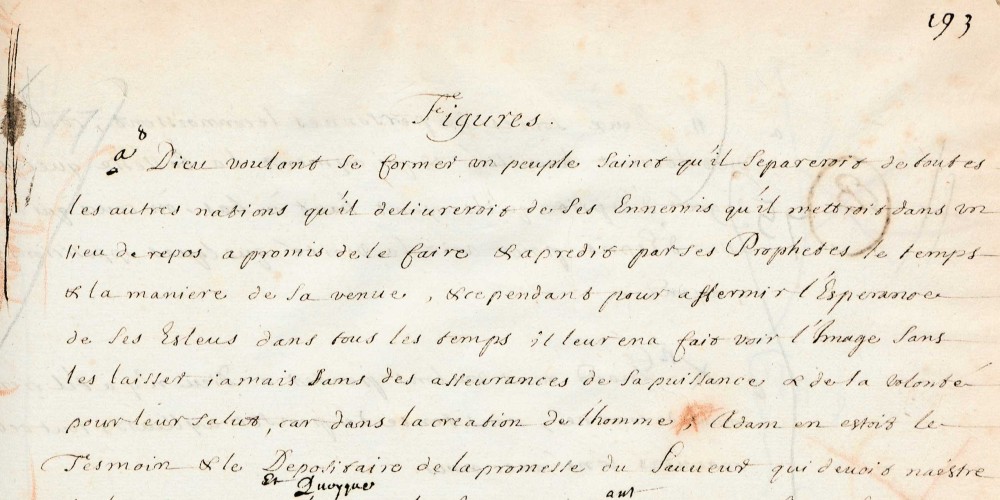 193
Figures.
a 8
Dieu voulant se former vn peuple sainct qu'il separeroit de toutes
les autres nations qu'il deliureroit de ses Ennemis qu'il mettroit dans vn
lieu de repos a promis de le faire & a predit par ses Prophetes le temps
& la maniere de sa venue, & cependant pour affermir l'Esperance
de ses Esleus dans tous les temps il leur en a fait voir l'Image sans
les laisser iamais sans des asseurances de sa puissance & de la volonté
pour leur salut, car dans la creation de l'homme, Adam en estoit le
Tesmoin & le Depositaire de la promesse du Sauueur qui deuoit naestre
Et Quoyque ant